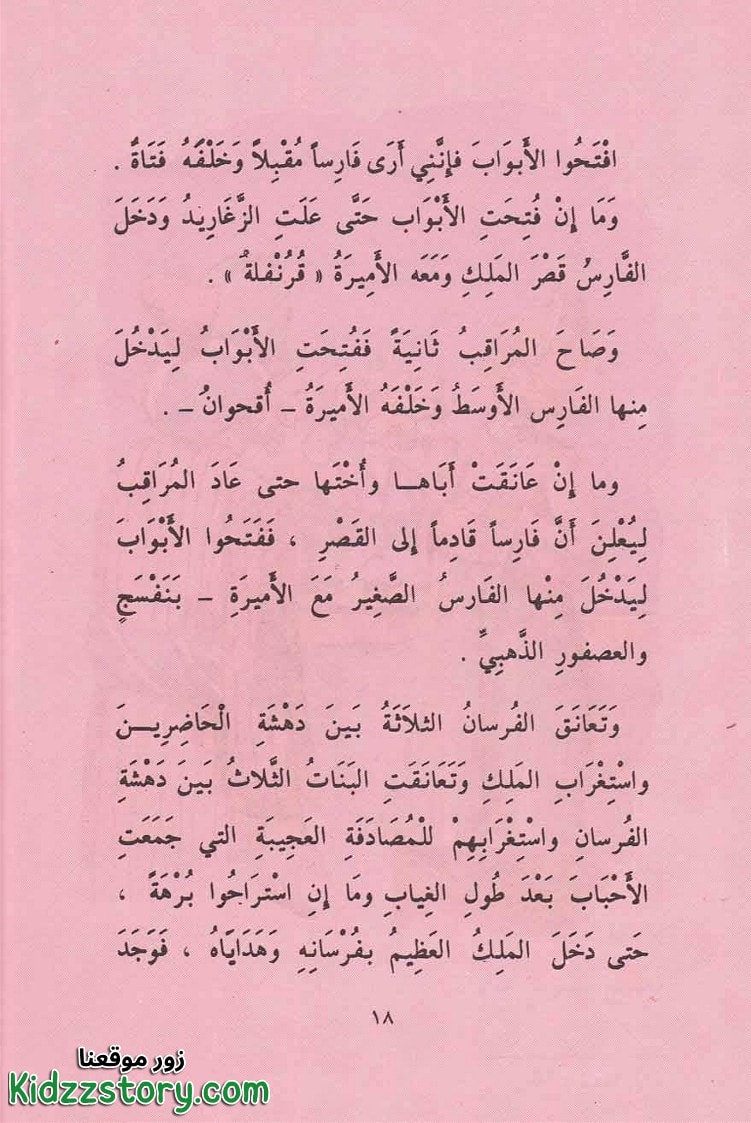 افْتَحُوا الأَبوَابَ فإِنَّنِي أَرَى فَارِساً مُقْبِلاً وَخَلْفَهُ فَتَاةٌ .
وَمَا إِنْ فُتِحَتِ الأَبْوَاب حَتَّى عَلَتِ الزَّغَارِيدُ وَدَخَلَ
الفَّارِسُ قَصْرَ المَلِكِ وَمَعَه الأَمِيرَةُ « قُرُنْفلةٌ » .
وَصَاحَ المُرَاقِبُ ثَانِيَةً فَفُتِحَتِ الأَبْوَابُ لِيَدْخُلَ
مِنها الفَارِس الأَوسَطُ وَخَلْفَهُ الأَميرَةُ – أُقحوانُ – .
وما إِنْ عَانَقَتْ أَبَاهـا وأُخْتَها حتى عَادَ المُرَاقِبُ
لِيُعْلِنَ أَنَّ فَارِساً قَادِماً إلى القَصْرِ ، فَفَتَحُوا الأَبْوَابَ
لِيَدْخُلَ مِنْها الفَارسُ الصَّغِيرُ مَعَ الأَميرَةِ – بَنَفْسَجٍ
والعصفورِ الذَّهبِيِّ .
وَتَعَانَقَ الفُرسانُ الثلاَثَةُ بَينَ دَهْشَةِ الْحَاضِرِيـنَ
واسْتِغْرَابِ المَلِكِ وَتَعَانَقَتِ البَنَاتُ الثَّلاثُ بَينَ دَهْشَةِ
الفُرسانِ واسْتِغْرَابِهِمْ للْمُصَادَفَةِ العَجِيبَةِ التي جَمَعَتِ
الأَحْبَابَ بَعْدَ طُولِ الغِيابِ ومَا إِن اسْتَراحُوا بُرْهَةً ،
حَتى دَخَلَ المَلِكُ العَظِيمُ بفُرْسَانِهِ وَهَدَايَاهُ ، فَوَجَدَ
١٨
زور موقعنا
Kidzzstory.com